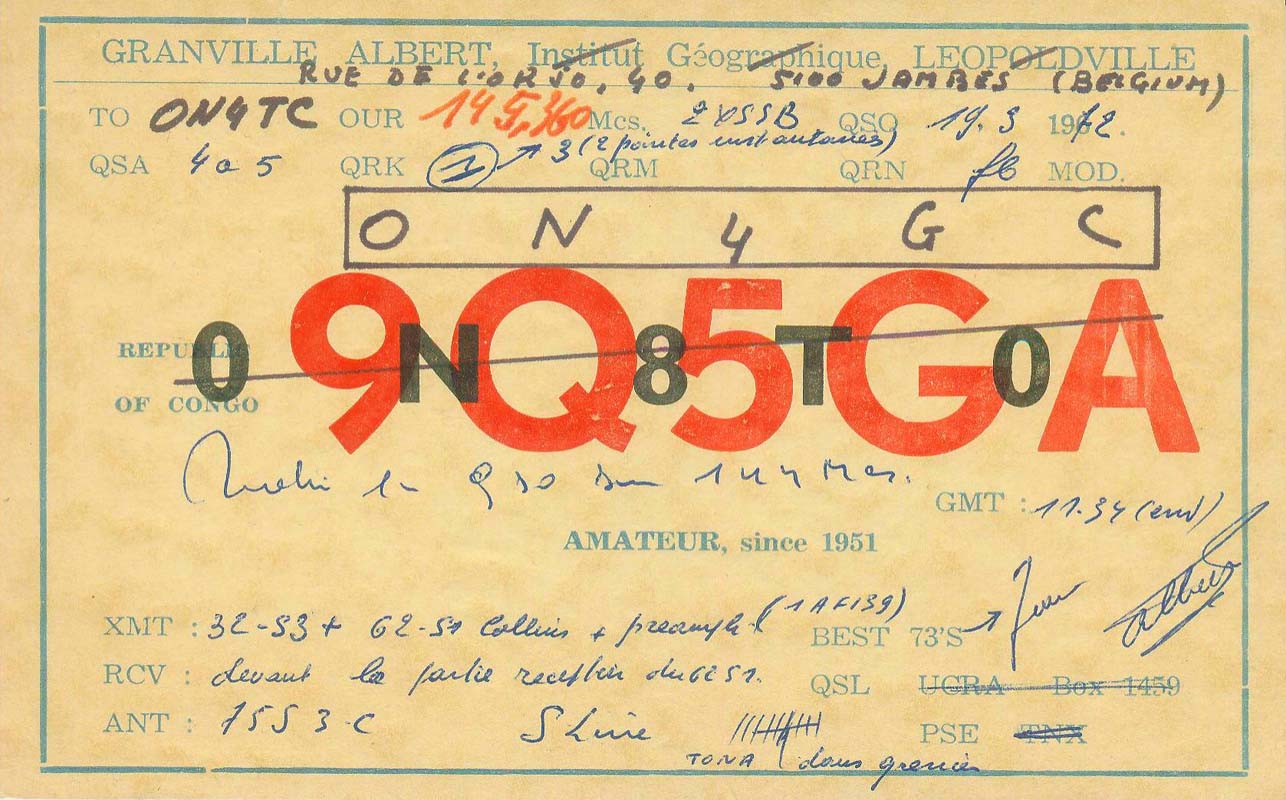 GRANVILLE ALBERT, Institut Géographique, LEOPOLDVILLE
RUE DE L'ORJO, 40. 5100 JAMBES (BELGIUM)
TO ON4TC OUR 145,360 Mcs. 2XSSB QSO 19.3 1972.
QSA 4 a 5 QRK 1 3 (2 pointes instantanées) QRM QRN fb MOD.
O N 4 G C
9Q5GA
0 N 8 T 0
REPUBLIC
OF CONGO
QSO 144 Mcs.
GMT : 11.34 (end)
AMATEUR, since 1951
XMT : 32-S3 + 62-S1 Collins + preampli (1 AF139)
BEST 73'S Jean Albert
RCV : devant la partie reception du 62S1.
QSL UGRA Box 1459
ANT : 75S3-C S Line
PSE TNX
TONA dans grenier